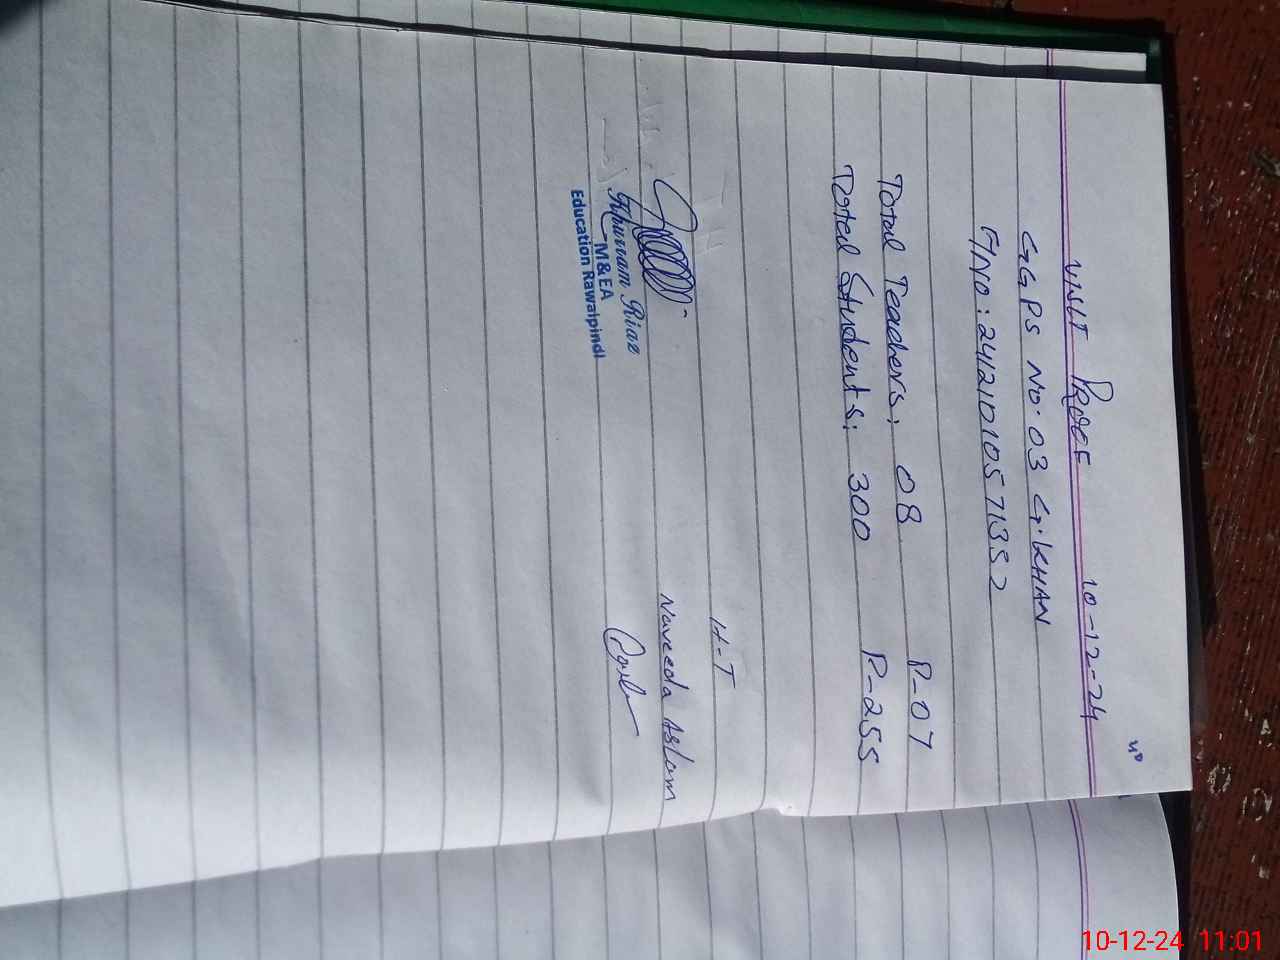 40
VISIT PROOF 10-12-24
GGPS No. 03 G.KHAN
A/No: 2412101057135 2
Total Teachers: 08 P-07
Total Students: 300 P-255
H-T
Naveeda Aslam
Khurram Riaz
M&EA
Education Rawalpindi
10-12-24 11:01